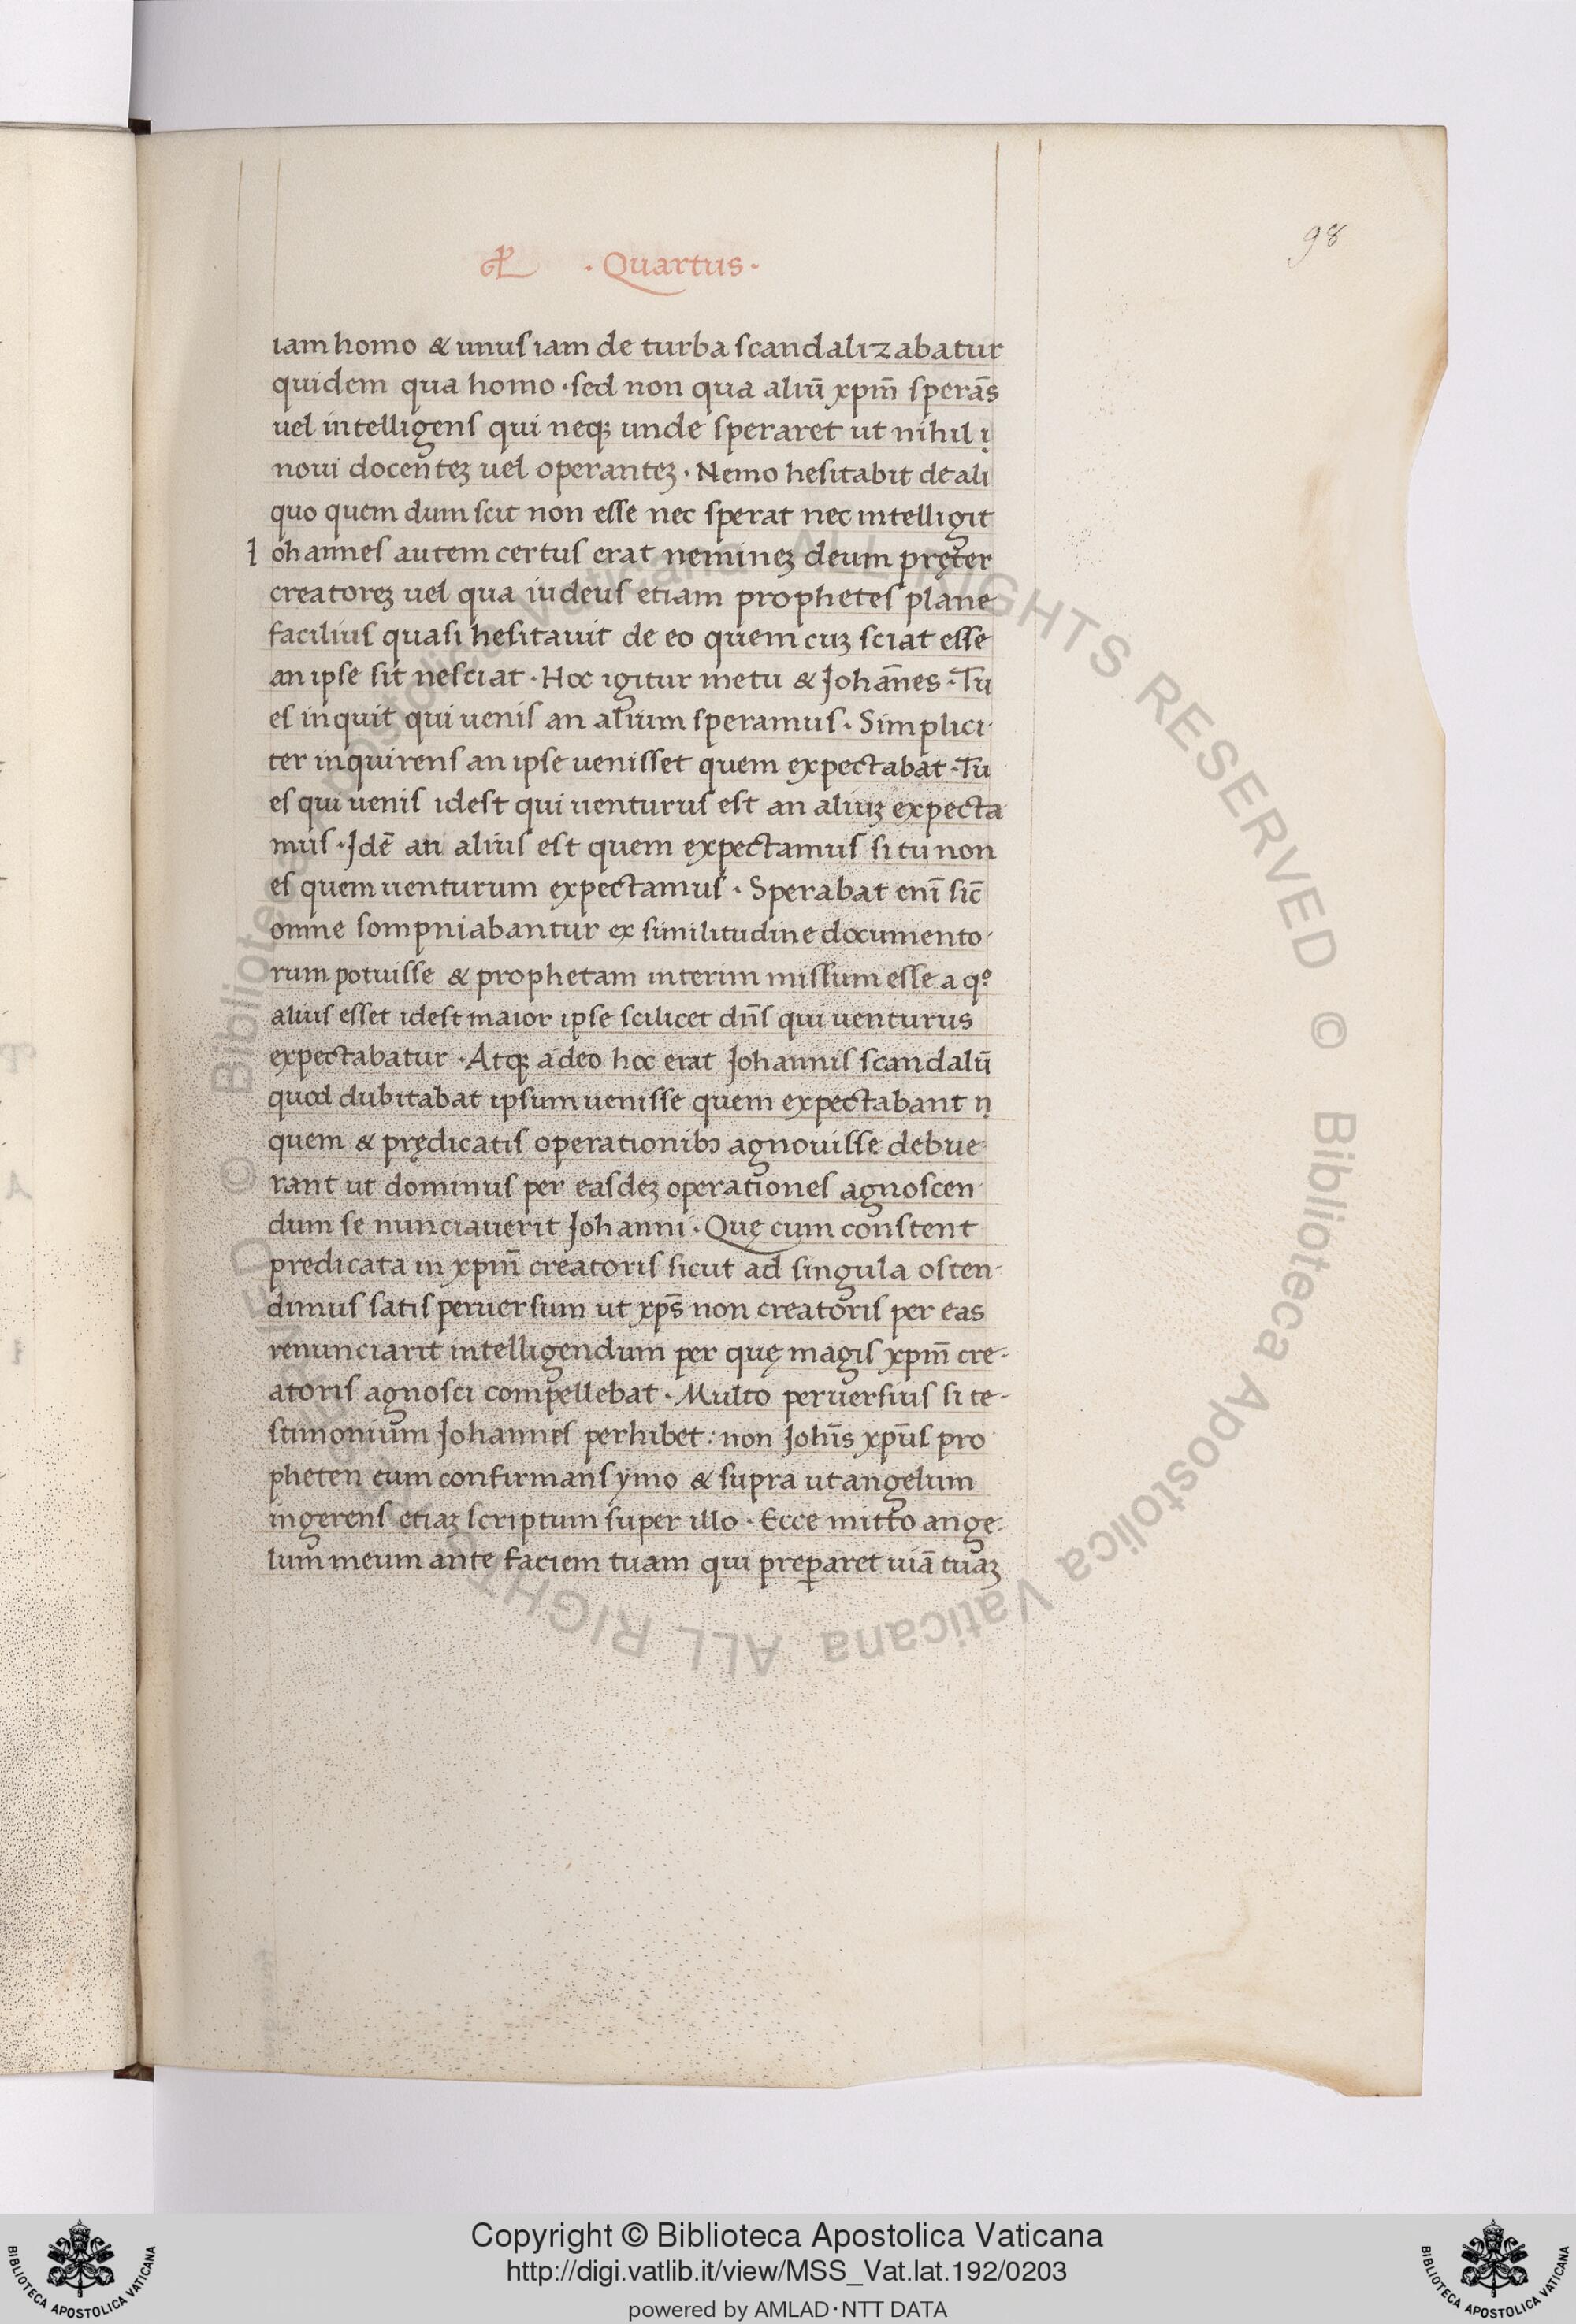 98
· Quartus ·
iam homo & unus iam de turba scandalizabatur
quidem qua homo · sed non qua aliū xpm̄ sperās
uel intelligens qui neqꝫ unde speraret ut nihil
noui docenteꝫ uel operanteꝫ · Nemo hesitabit de ali
quo quem dum scit non esse nec sperat nec intelligit
Iohannes autem certus erat nemineꝫ deum pręter
creatoreꝫ uel qua iudeus etiam prophetes plane
facilius quasi hesitauit de eo quem cuꝫ sciat esse
an ipse sit nesciat · Hoc igitur metu & Johānes · Tu
es inquit qui uenis an alium speramus · Simplici
ter inquirens an ipse uenisset quem expectabat · Tu
es qui uenis idest qui uenturus est an aliuꝫ expecta
mus · Jdē an alius est quem expectamus si tu non
es quem uenturum expectamus · Sperabat enī sic̄
omne sompniabantur ex similitudine documento
rum potuisse & prophetam interim missum esse a qº
alius esset idest maior ipse scilicet dn̄s qui uenturus
expectabatur · Atqꝫ adeo hoc erat Johannis scandalū
quod dubitabat ipsum uenisse quem expectabant
quem & prędicatis operationibꝫ agnouisse debue
rant ut dominus per easdeꝫ operationes agnoscen
dum se nunciauerit Johanni · Quę cum constent
predicata in xpm̄ creatoris sicut ad singula osten-
dimus satis peruersum ut xps̄ non creatoris per eas
renunciarit intelligendum per quę magis xpm̄ cre-
atoris agnosci compellebat · Multo peruersius si te-
stimonium Johannes perhibet : non Johīs xpūs pro
pheten eum confirmans ymo & supra ut angelum
ingerens etiaꝫ scriptum super illo · Ecce mitto ange
lum meum ante faciem tuam qui preꝑaret uiā tuaꝫ
© Biblioteca Apostolica Vaticana ALL RIGHTS RESERVED © Biblioteca Apostolica Vaticana ALL RIGHTS RESERVED
Copyright © Biblioteca Apostolica Vaticana
http://digi.vatlib.it/view/MSS_Vat.lat.192/0203
powered by AMLAD·NTT DATA
BIBLIOTECA APOSTOLICA VATICANA
BIBLIOTECA APOSTOLICA VATICANA